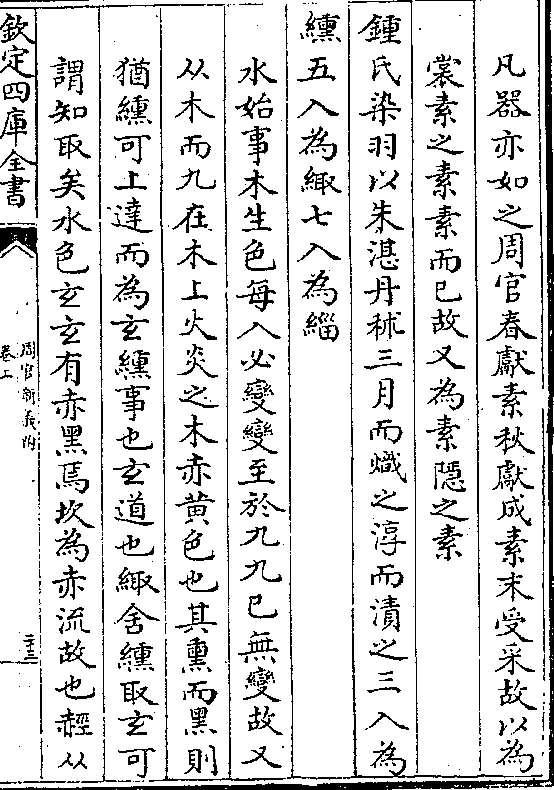 凡器亦如之周官春獻素秋獻成素末受采故以為
裳素之素素而已故又為素隱之素
鍾氏染羽以朱湛丹秫三月而熾之淳而漬之三入為
纁五入為緅七入為緇
水始事木生色每入必變變至於九九已無變故又
从木而九在木上火炎之木赤黄色也其熏而黑則
猶纁可上達而為玄纁事也玄道也緅舍纁取玄可
謂知取矣水色玄玄有赤黑焉坎為赤流故也䞓从
欽定四庫全書
周官新義附
卷上
二十三